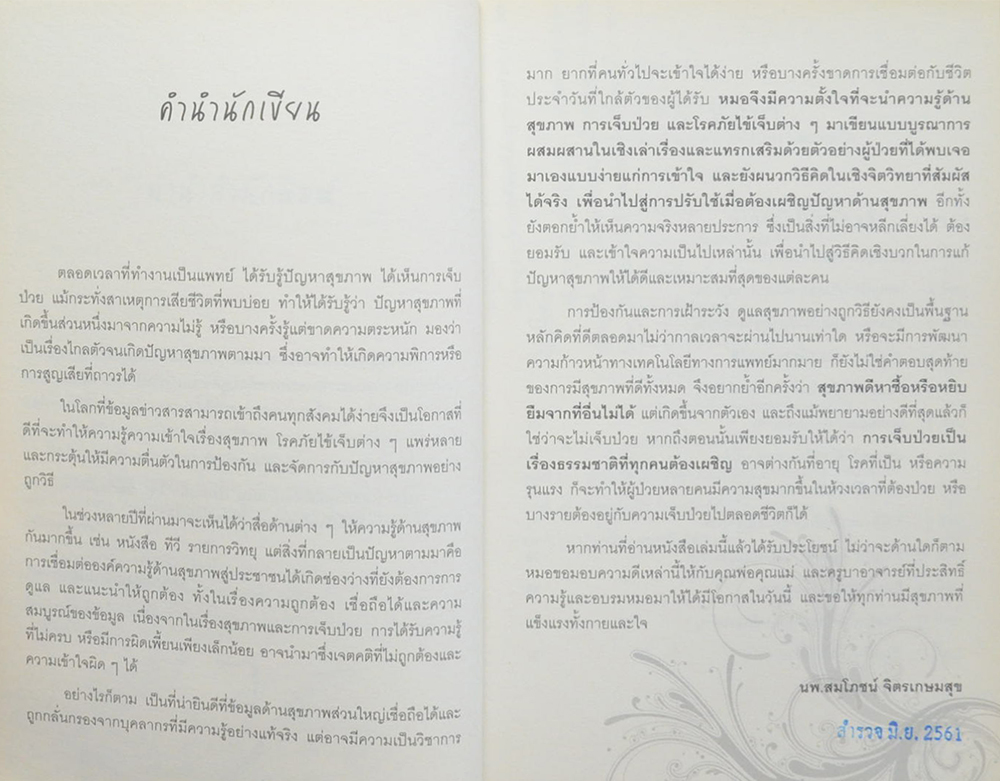 คำนำนักเขียน
ตลอดเวลาที่ทำงานเป็นแพทย์ ได้รับรู้ปัญหาสุขภาพ ได้เห็นการเจ็บ
ป่วย แม้กระทั่งสาเหตุการเสียชีวิตที่พบบ่อย ทำให้ได้รับรู้ว่า ปัญหาสุขภาพที่
เกิดขึ้นส่วนหนึ่งมาจากความไม่รู้ หรือบางครั้งรู้แต่ขาดความตระหนัก มองว่า
เป็นเรื่องไกลตัวจนเกิดปัญหาสุขภาพตามมา ซึ่งอาจทำให้เกิดความพิการหรือ
การสูญเสียที่ถาวรได้
ในโลกที่ข้อมูลข่าวสารสามารถเข้าถึงคนทุกสังคมได้ง่ายจึงเป็นโอกาสที่
ดีที่จะทำให้ความรู้ความเข้าใจเรื่องสุขภาพ โรคภัยไข้เจ็บต่าง ๆ แพร่หลาย
และกระตุ้นให้มีความตื่นตัวในการป้องกัน และจัดการกับปัญหาสุขภาพอย่าง
ถูกวิธี
ในช่วงหลายปีที่ผ่านมาจะเห็นได้ว่าสื่อด้านต่าง ๆ ให้ความรู้ด้านสุขภาพ
กันมากขึ้น เช่น หนังสือ ทีวี รายการวิทยุ แต่สิ่งที่กลายเป็นปัญหาตามมาคือ
การเชื่อมต่อองค์ความรู้ด้านสุขภาพสู่ประชาชนได้เกิดช่องว่างที่ยังต้องการการ
ดูแล และแนะนำให้ถูกต้อง ทั้งในเรื่องความถูกต้อง เชื่อถือได้และความ
สมบูรณ์ของข้อมูล เนื่องจากในเรื่องสุขภาพและการเจ็บป่วย การได้รับความรู้
ที่ไม่ครบ หรือมีการผิดเพี้ยนเพียงเล็กน้อย อาจนำมาซึ่งเจตคติที่ไม่ถูกต้องและ
ความเข้าใจผิด ๆ ได้
อย่างไรก็ตาม เป็นที่น่ายินดีที่ข้อมูลด้านสุขภาพส่วนใหญ่เชื่อถือได้และ
ถูกกลั่นกรองจากบุคลากรที่มีความรู้อย่างแท้จริง แต่อาจมีความเป็นวิชาการ
มาก ยากที่คนทั่วไปจะเข้าใจได้ง่าย หรือบางครั้งขาดการเชื่อมต่อกับชีวิต
ประจำวันที่ใกล้ตัวของผู้ได้รับ หมอจึงมีความตั้งใจที่จะนำความรู้ด้าน
สุขภาพ การเจ็บป่วย และโรคภัยไข้เจ็บต่าง ๆ มาเขียนแบบบูรณาการ
ผสมผสานในเชิงเล่าเรื่องและแทรกเสริมด้วยตัวอย่างผู้ป่วยที่ได้พบเจอ
มาเองแบบง่ายแก่การเข้าใจ และยังผนวกวิธีคิดในเชิงจิตวิทยาที่สัมผัส
ได้จริง เพื่อนำไปสู่การปรับใช้เมื่อต้องเผชิญปัญหาด้านสุขภาพ อีกทั้ง
ยังตอกย้ำให้เห็นความจริงหลายประการ ซึ่งเป็นสิ่งที่ไม่อาจหลีกเลี่ยงได้ ต้อง
ยอมรับ และเข้าใจความเป็นไปเหล่านั้น เพื่อนำไปสู่วิธีคิดเชิงบวกในการแก้
ปัญหาสุขภาพให้ได้ดีและเหมาะสมที่สุดของแต่ละคน
การป้องกันและการเฝ้าระวัง ดูแลสุขภาพอย่างถูกวิธียังคงเป็นพื้นฐาน
หลักคิดที่ดีตลอดมาไม่ว่ากาลเวลาจะผ่านไปนานเท่าใด หรือจะมีการพัฒนา
ความก้าวหน้าทางเทคโนโลยีทางการแพทย์มากมาย ก็ยังไม่ใช่คำตอบสุดท้าย
ของการมีสุขภาพที่ดีทั้งหมด จึงอยากย้ำอีกครั้งว่า สุขภาพดีหาซื้อหรือหยิบ
ยืมจากที่อื่นไม่ได้ แต่เกิดขึ้นจากตัวเอง และถึงแม้พยายามอย่างดีที่สุดแล้วก็
ใช่ว่าจะไม่เจ็บป่วย หากถึงตอนนั้นเพียงยอมรับให้ได้ว่า การเจ็บป่วยเป็น
เรื่องธรรมชาติที่ทุกคนต้องเผชิญ อาจต่างกันที่อายุ โรคที่เป็น หรือความ
รุนแรง ก็จะทำให้ผู้ป่วยหลายคนมีความสุขมากขึ้นในห้วงเวลาที่ต้องป่วย หรือ
บางรายต้องอยู่กับความเจ็บป่วยไปตลอดชีวิตก็ได้
หากท่านที่อ่านหนังสือเล่มนี้แล้วได้รับประโยชน์ ไม่ว่าจะด้านใดก็ตาม
หมอขอมอบความดีเหล่านี้ให้กับคุณพ่อคุณแม่ และครูบาอาจารย์ที่ประสิทธิ์
ความรู้และอบรมหมอมาให้ได้มีโอกาสในวันนี้ และขอให้ทุกท่านมีสุขภาพที่
แข็งแรงทั้งกายและใจ
นพ.สมโภชน์ จิตรเกษมสุข
สำรวจ มิ.ย. 2561